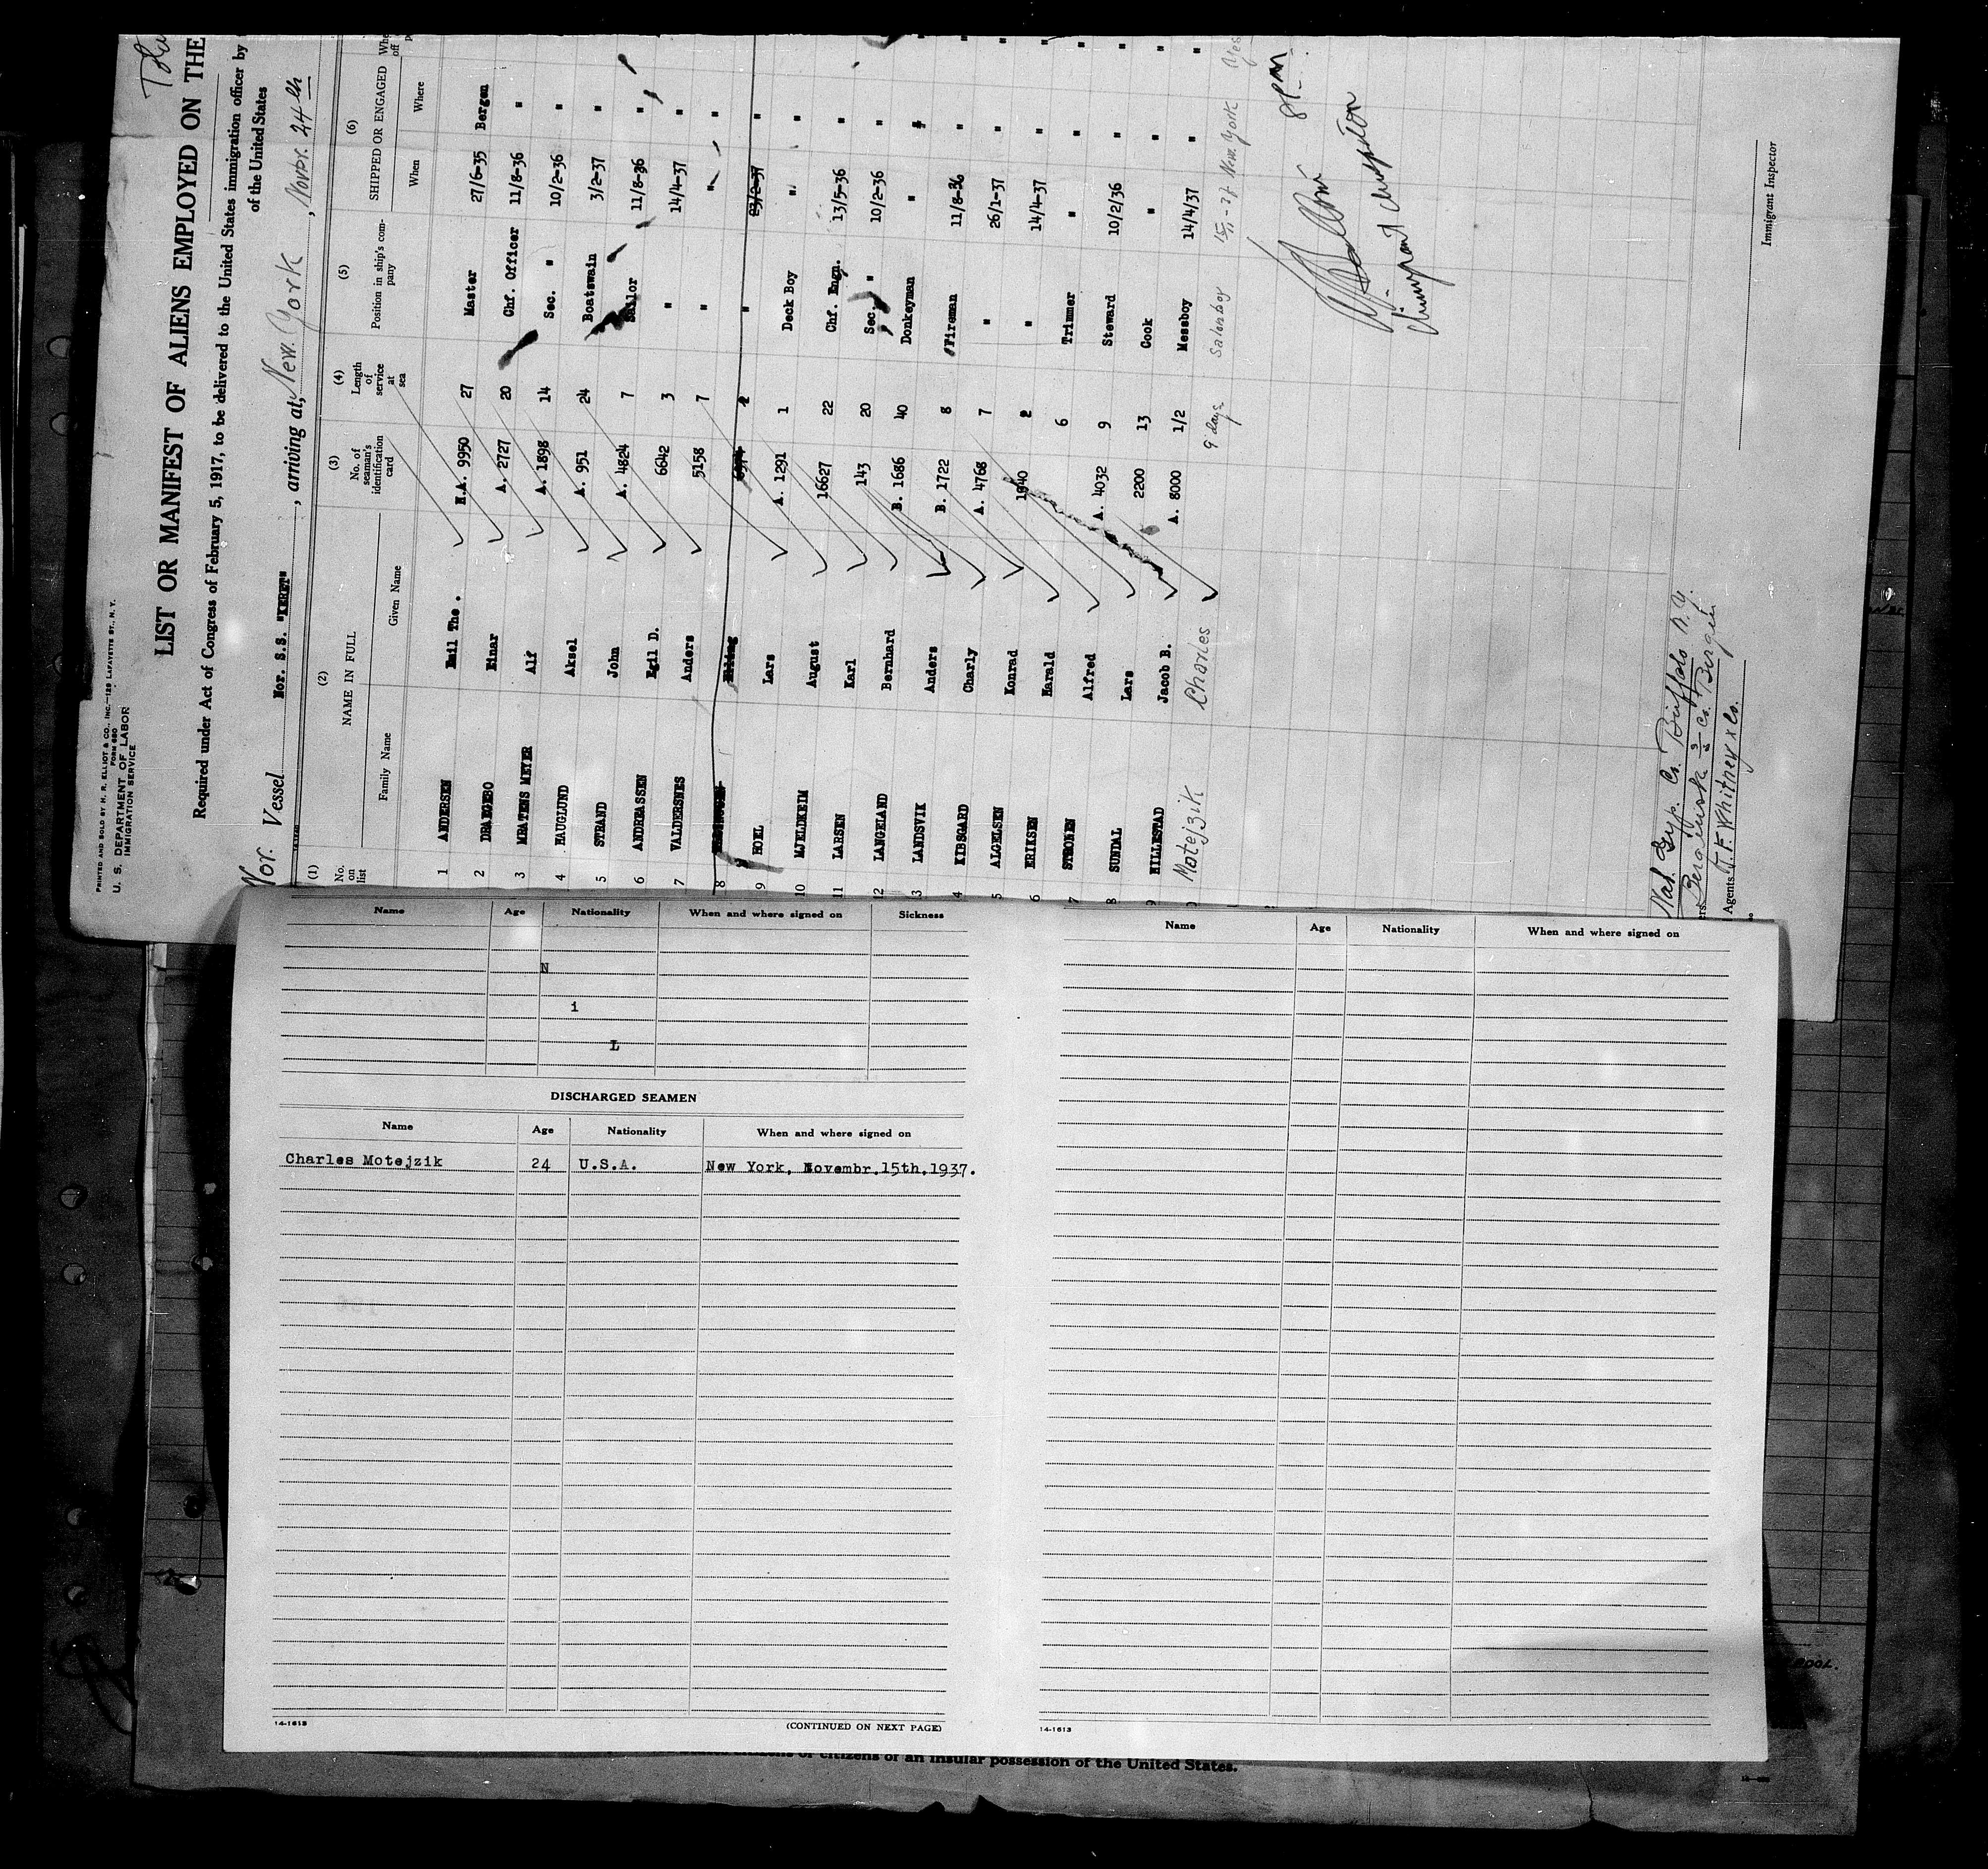 PRINTED AND SOLD BY H. R. ELLIOT & CO., INC.—129 LAFAYETTE ST., N. Y.
FORM 680
U. S. DEPARTMENT OF LABOR
IMMIGRATION SERVICE
LIST OR MANIFEST OF ALIENS EMPLOYED ON THE
Required under Act of Congress of February 5, 1917, to be delivered to the United States immigration officer by
of the United States
Nor. Vessel Nor. S.S. "KERET" , arriving at, New. York , Novbr. 24th
(1) (2) (3) (4) (5) (6)
No. on list NAME IN FULL No. of seaman's identification card Length of service at sea Position in ship's company SHIPPED OR ENGAGED
Family Name Given Name When Where
1 ANDERSEN Emil The . N.A. 9950 27 Master 27/6-35 Bergen
2 DRAEGEBO Einar A. 2727 20 Chf. Officer 11/8-36 "
3 MRATENS MEYER Alf A. 1898 14 Sec. " 10/2-36 "
4 HAUGLUND Aksel A. 951 24 Boatswain 3/2-37 "
5 STRAND John A. 4824 7 Sailor 11/8-36 "
6 ANDREASSEN Egil D. 6642 3 " 14/4-37 "
7 VALDERSNES Anders 5158 7 " " "
8 " 23/2-37 "
9 HOEL Lars A. 1291 1 Deck Boy " "
10 MJELDHEIM August 16627 22 Chf. Engn. 13/5-36 "
11 LARSEN Karl 143 20 Sec. " 10/2-36 "
12 LANGELAND Bernhard B. 1686 40 Donkeyman " "
3 LANDSVIK Anders B. 1722 8 Fireman 11/8-36 "
4 KIBSGARD Charly A. 4768 7 " 26/1-37 "
5 ALGELSEN Konrad 1840 2 " 14/4-37 "
6 ERIKSEN Harald 6 Trimmer " "
7 STRONEN Alfred A. 4032 9 Steward 10/2/36 "
8 SUNDAL Lars 2200 13 Cook " "
9 HILLESTAD Jacob B. A. 8000 1/2 Messboy 14/4/37 "
Motejzik Charles 9 days Salonboy 15/11-37 New. York Yes
Nat. Gyp. Co. Buffalo N.Y.
Agents J. F. Whitney & Co.
Immigrant Inspector
Name Age Nationality When and where signed on Sickness
N
i
L
DISCHARGED SEAMEN
Name Age Nationality When and where signed on
Charles Motejzik 24 U.S.A. New York, Novembr.15th,1937.
14-1613 (CONTINUED ON NEXT PAGE)
Name Age Nationality When and where signed on
14-1613
citizens or citizens of an insular possession of the United States.